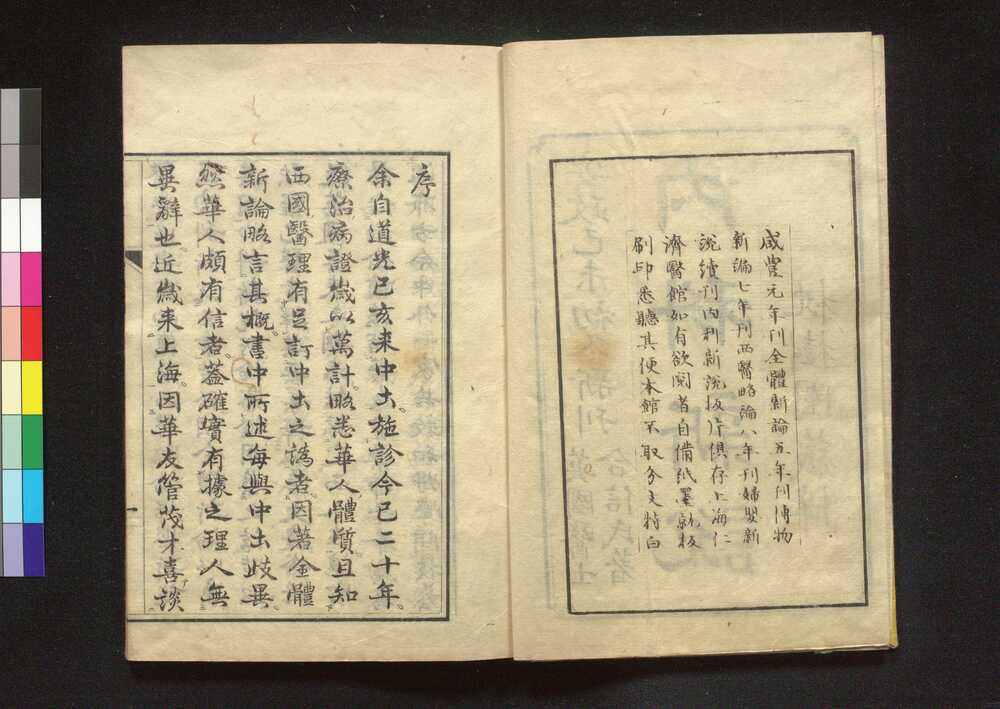 咸豐元年刊全體新論五年刊博物
新編七年刊西醫略論八年刊婦嬰新
說續刊內科新說板片俱存上海仁
濟醫館如有欲閱者自備紙墨就板
刷印悉聽其便本館不取分文特白
序
余自道光己亥来中土施診今已二十年
療治病證歲以萬計略悉華人體質且知
西國醫理有足訂中土之譌者因著全體
新論略言其概書中所述每與中土歧異
然華人頗有信者蓋確實有據之理人無
異辭也近歲来上海因華友管茂才喜談
一